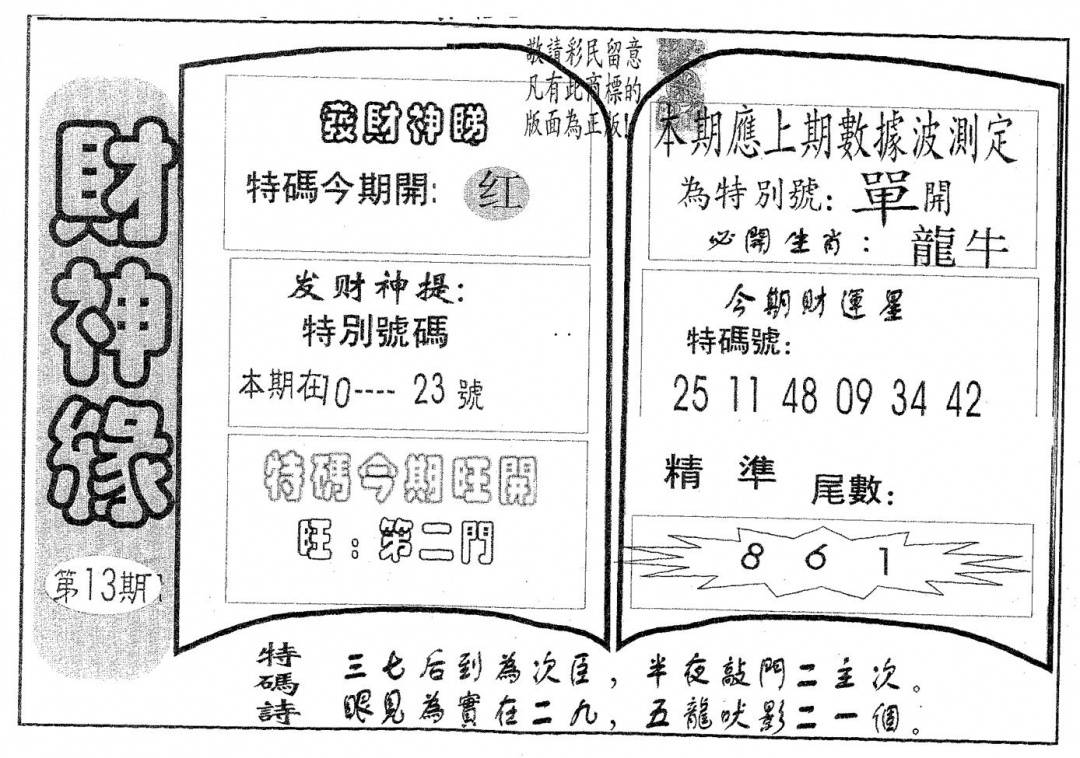 財神緣
第13期
敬請彩民留意
凡有此商標的
版面為正版!
發財神睇
特碼今期開: 红
发财神提:
特別號碼
本期在10---- 23 號
特碼今期旺開
旺:第二門
本期應上期數據波測定
為特別號: 單開
必開生肖: 龍牛
今期財運星
特碼號:
25 11 48 09 34 42
精 準 尾數:
8 6 1
特碼詩
三七后到為次臣,半夜敲門二主次。
眼見為實在二九,五龍吠影二一個。